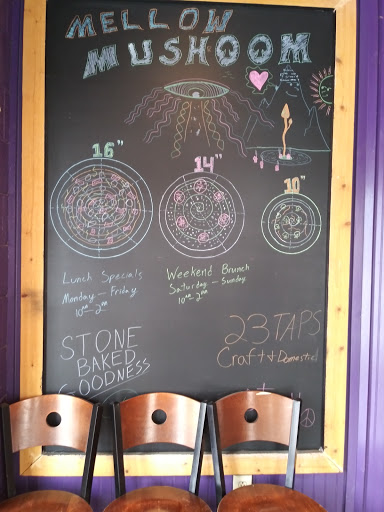 MELLOW
MUSHOOM
16"
14"
10"
Lunch Specials
Monday - Friday
10ᵃᵐ - 2ᵖᵐ
Weekend Brunch
Saturday - Sunday
10ᵃᵐ - 2ᵖᵐ
STONE
BAKED
GOODNESS
23 TAPS
Craft + Domestic